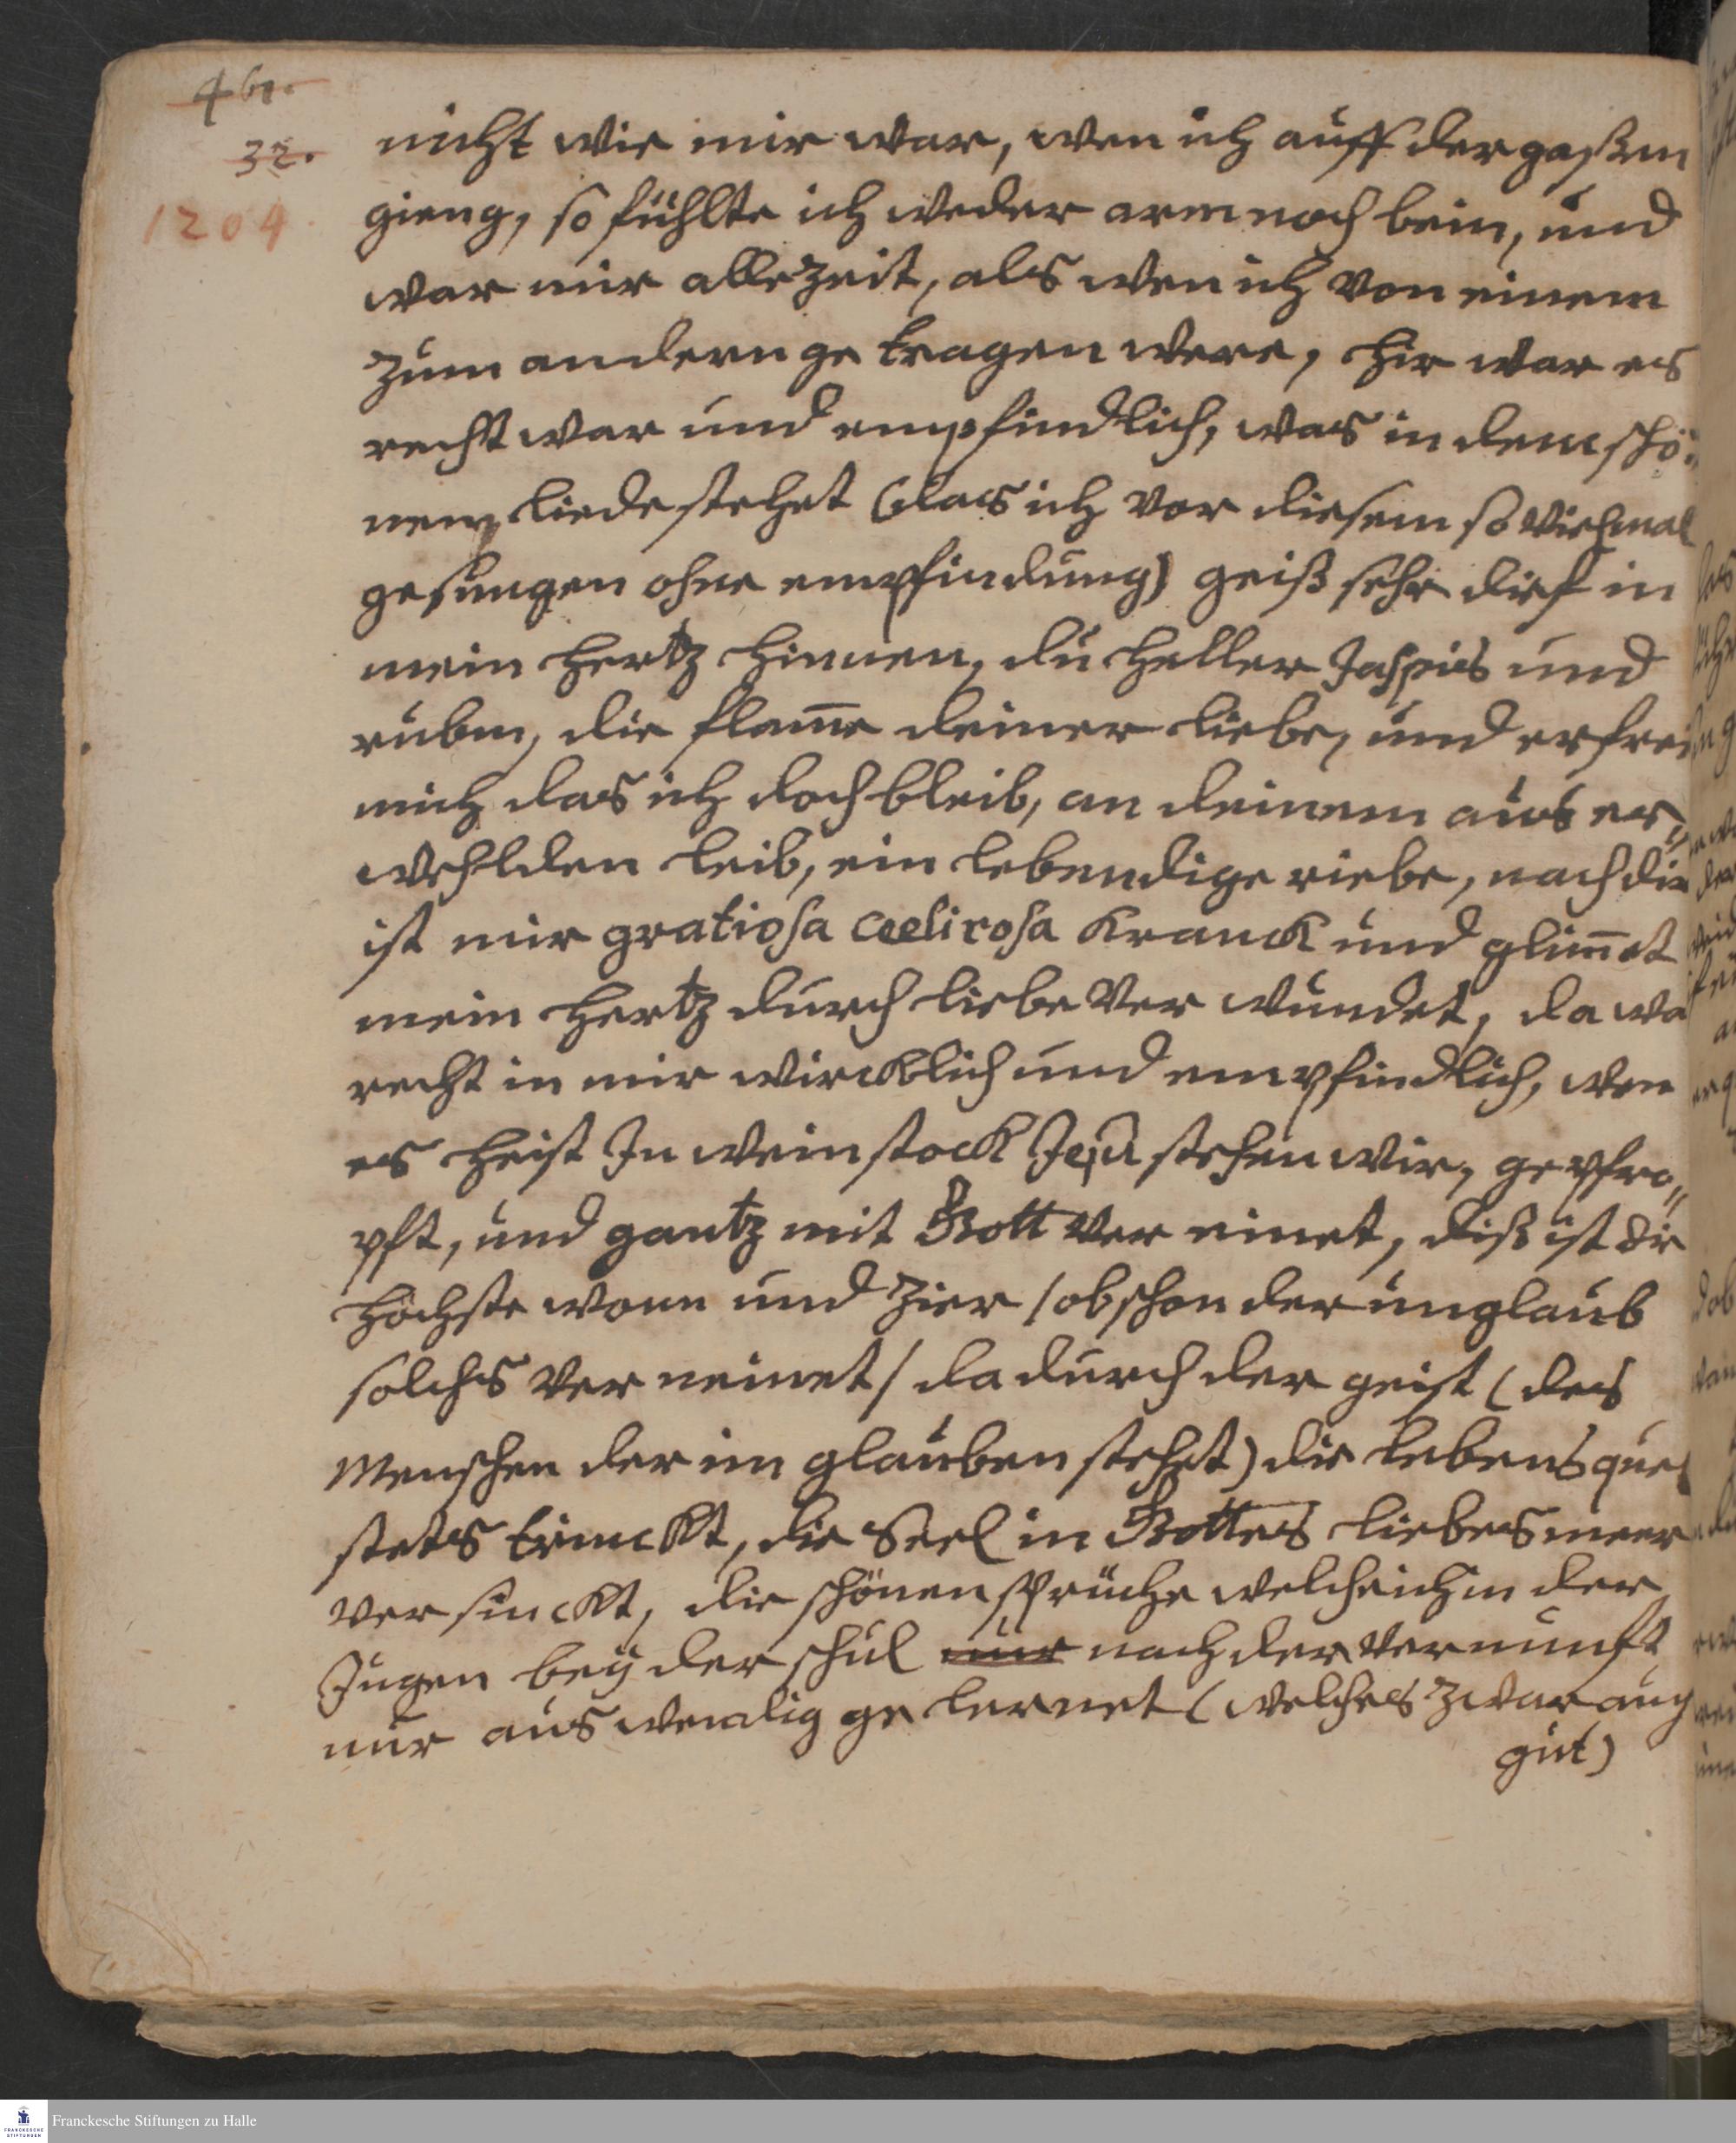 461.
32.
1204.
nicht wie mir war, wen ich auff der gaßen
gieng, so fühlte ich weder arm noch bein, und
war mir allezeit, als wen ich von einem
zum andern ge tragen were, hir war es
recht war und empfindlich, was in dem schö=
nem liede stehet (das ich vor diesem so viehmal
gesungen ohne empfindung) geiß sehr dief in
mein hertz hinnen, du heller Jaspis und
rubin, die flam̄e deiner liebe, und erfreü
mich das ich doch bleib, an deinem aus er=
wehlden leib, ein lebendige riebe, nach dir
ist mir gratiosa coeli rosa kranck und glim̄et
mein hertz durch liebe ver wundet, da wa
recht in mir wircklich und empfindlich, wen
es heist In weinstock Jesu stehen wir, gepfro=
pft, und gantz mit Gott ver einet, diß ist die
höchste wonn und zier / obschon der unglaub
solchs ver neinet / dadurch der geist (des
Menschen der im glauben stehet) die lebens quel
stets trinckt, die Seel in Gottes liebes meer
ver sinckt, die schönen sprüche welche ich in der
Jugen bey der schul nur nach der vernunft
nur aus wendig ge lernet (welches zwar auch
gut)
Franckesche Stiftungen zu Halle